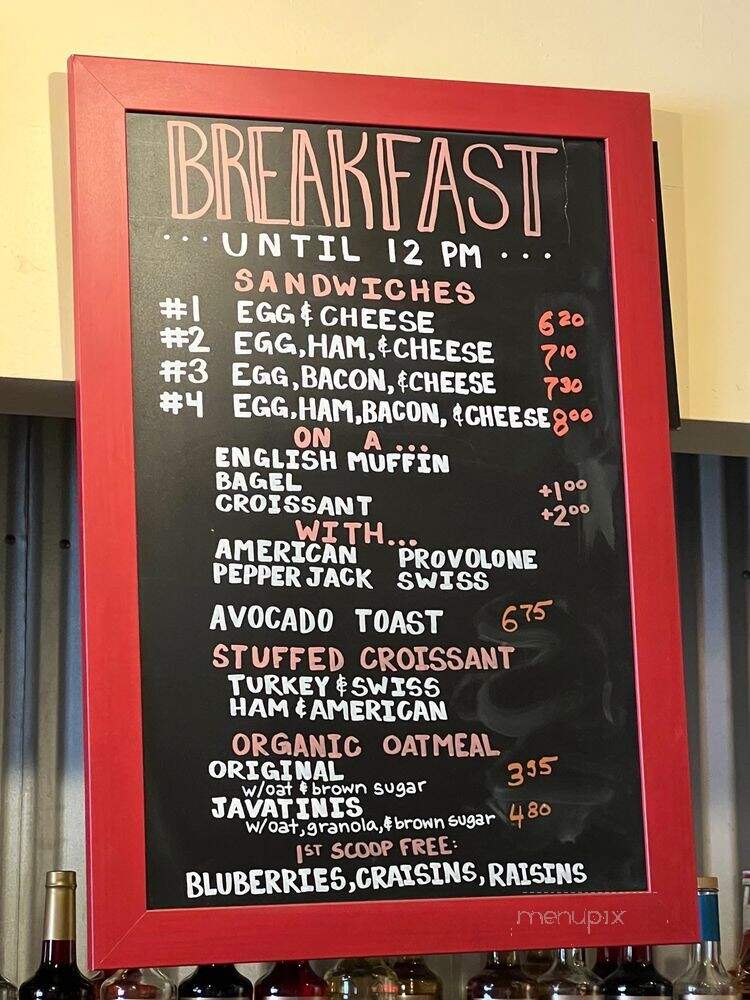 BREAKFAST
... UNTIL 12 PM ...
SANDWICHES
#1 EGG & CHEESE 6 20
#2 EGG, HAM, & CHEESE 7 10
#3 EGG, BACON, & CHEESE 7 30
#4 EGG, HAM, BACON, & CHEESE 8 00
ON A ...
ENGLISH MUFFIN
BAGEL +1 00
CROISSANT +2 00
WITH...
AMERICAN PROVOLONE
PEPPER JACK SWISS
AVOCADO TOAST 6 75
STUFFED CROISSANT
TURKEY & SWISS
HAM & AMERICAN
ORGANIC OATMEAL
ORIGINAL 3 95
w/oat & brown sugar
JAVATINIS 4 80
w/oat, granola, & brown sugar
1ST SCOOP FREE:
BLUBERRIES, CRAISINS, RAISINS
menupix